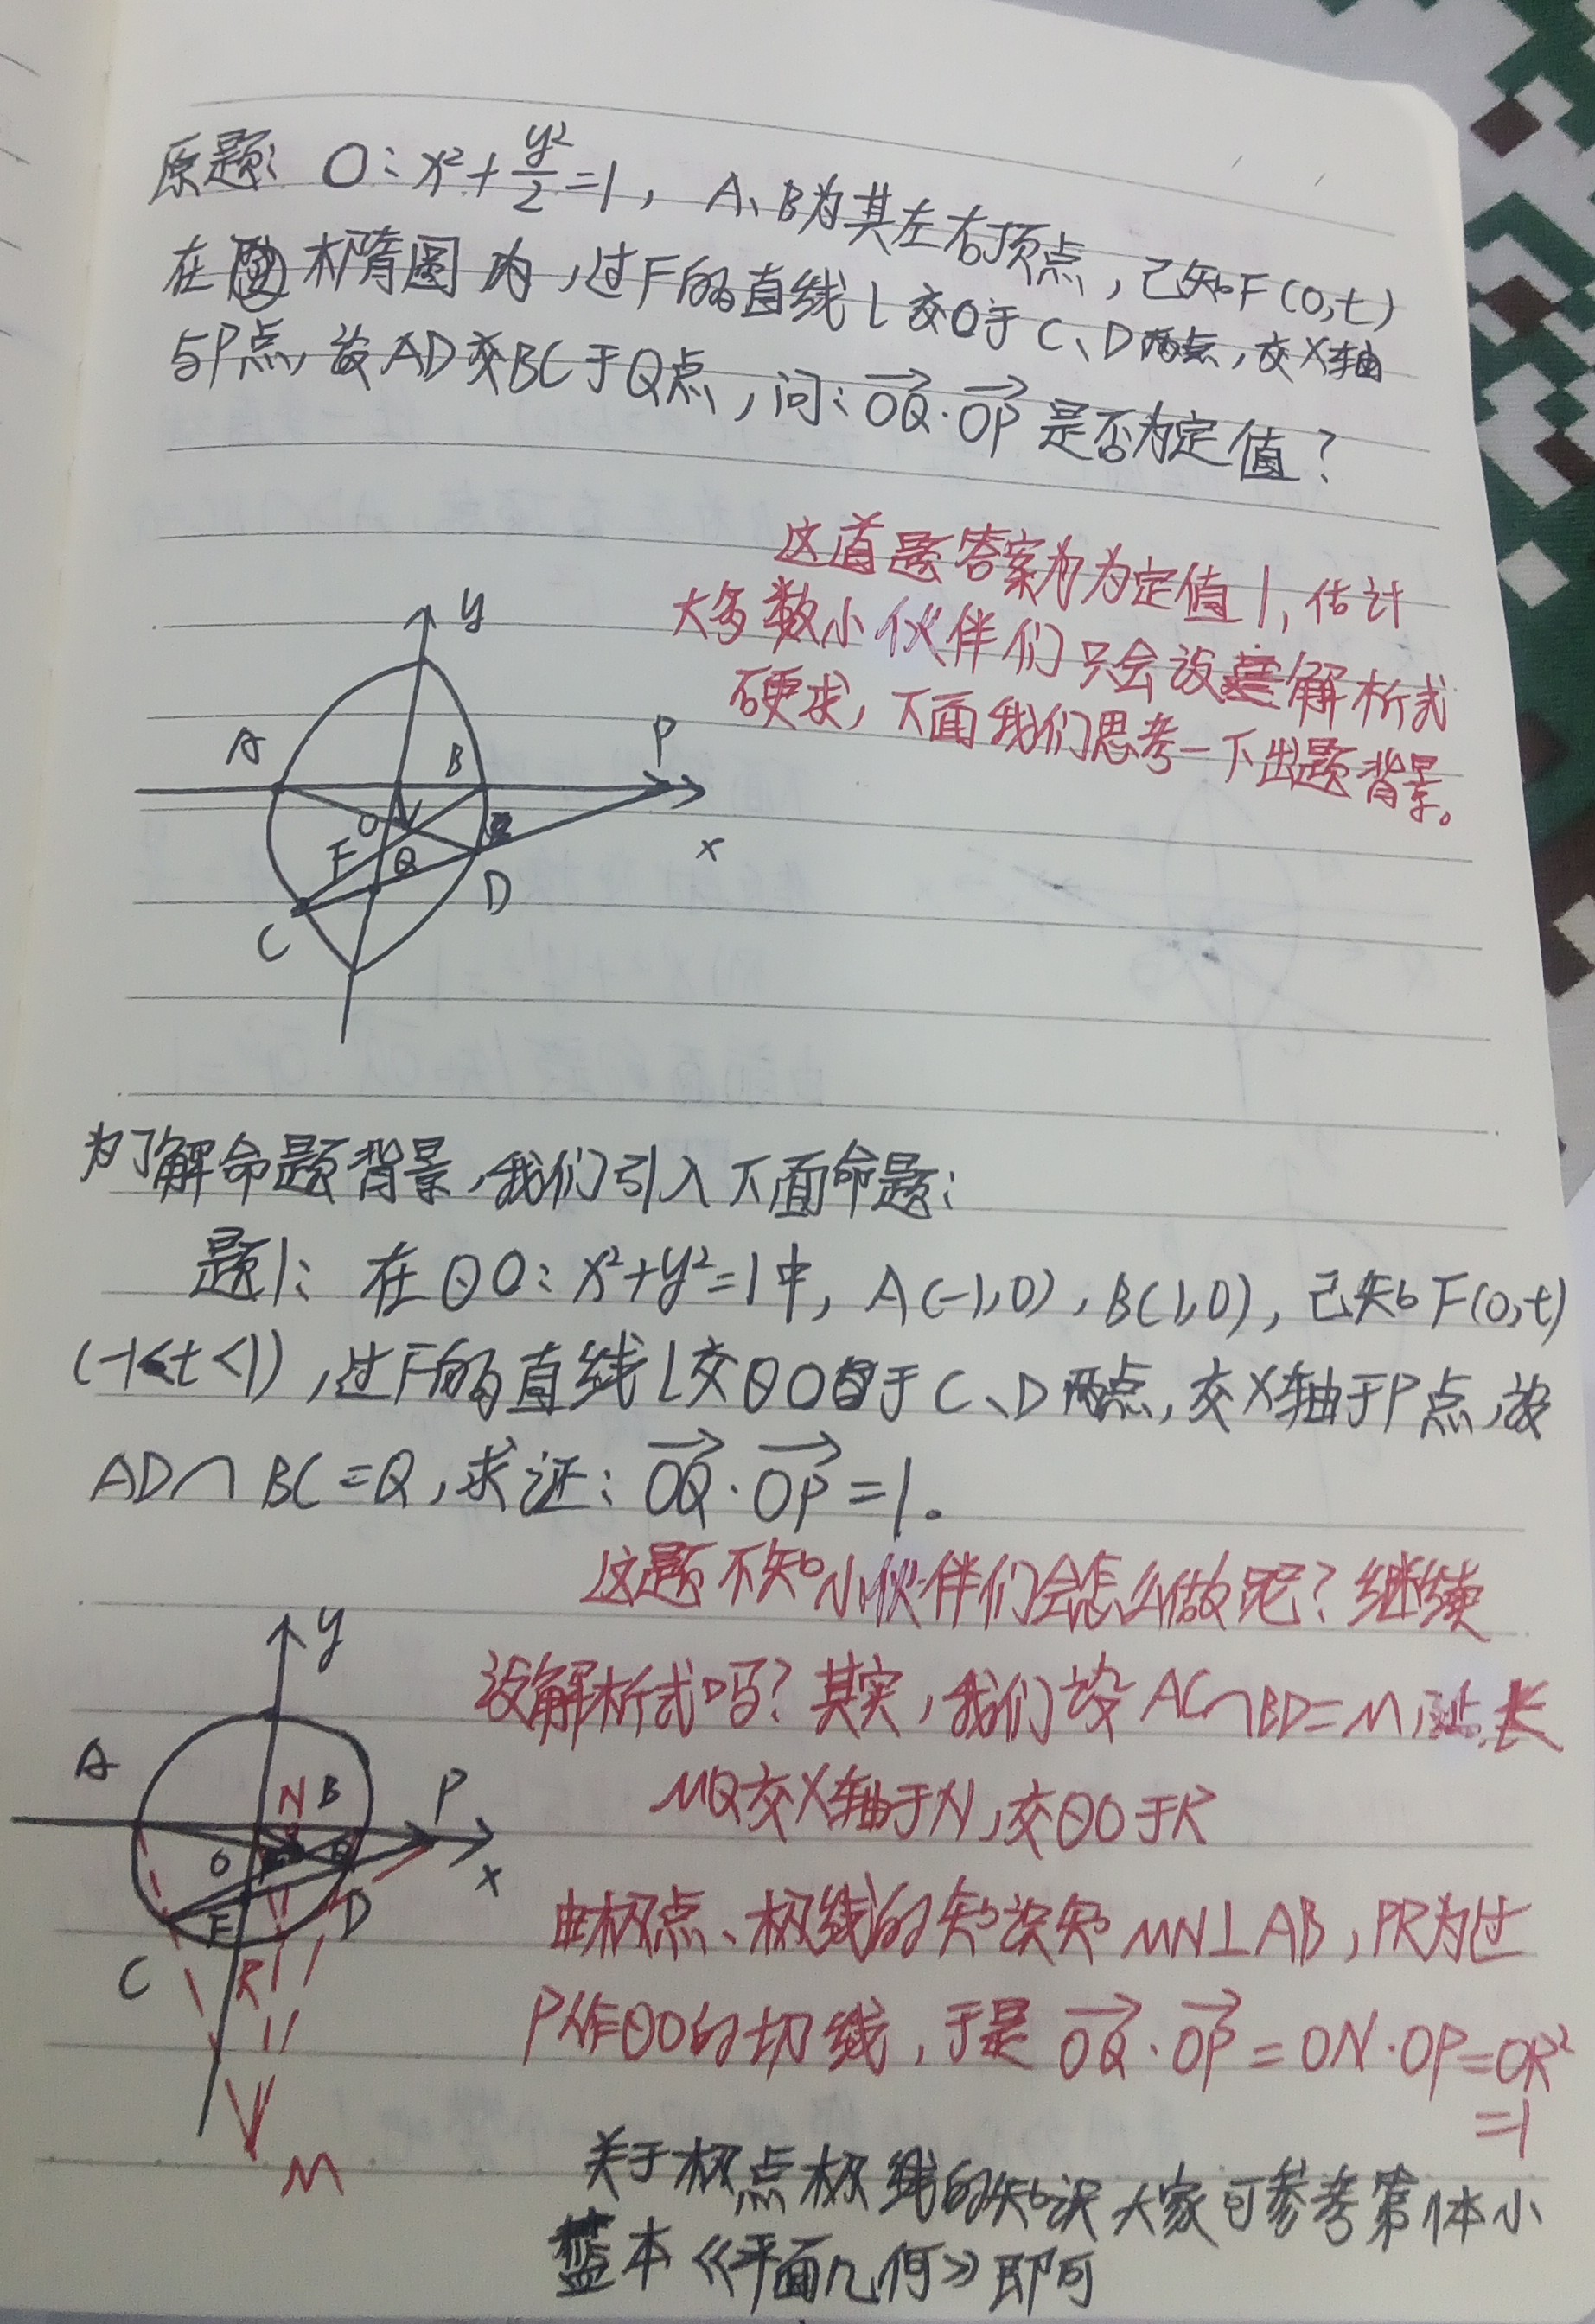 原题: O: x²+y²/2=1, A、B为其左右顶点, 已知F(0,t)
在椭圆内,过F的直线l交O于C、D两点,交X轴
与P点,设AD交BC于Q点,问:OQ·OP是否为定值?
这道题答案为为定值1,估计
大多数小伙伴们只会设解析式
硬求,下面我们思考一下出题背景。
y
A
B
P
O
x
F
Q
D
C
为了解命题背景,我们引入下面命题:
题1: 在⊙O: x²+y²=1中, A(-1,0), B(1,0), 已知F(0,t)
(-1<t<1),过F的直线l交⊙O于C、D两点,交X轴于P点,设
AD∩BC=Q,求证:OQ·OP=1。
这题不知小伙伴们会怎么做呢?继续
设解析式吗?其实,我们设AC∩BD=M,延长
MQ交X轴于N,交⊙O于R
由极点、极线的知识知MN⊥AB,PR为过
P作⊙O的切线,于是OQ·OP=ON·OP=OR²
=1
y
A
N
B
P
O
Q
x
F
D
C
R
M
关于极点极线的知识大家可参考第1本小
蓝本《平面几何》即可